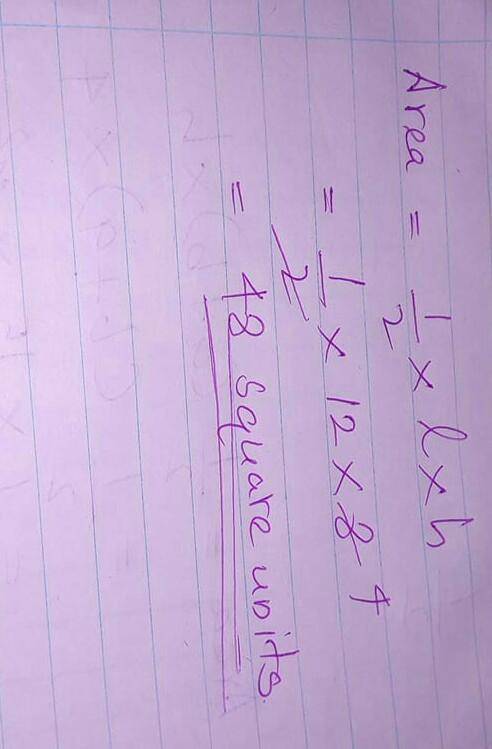 Area = 1/2 x l x h
= 1/2 x 12 x 8 4
= 48 square units.